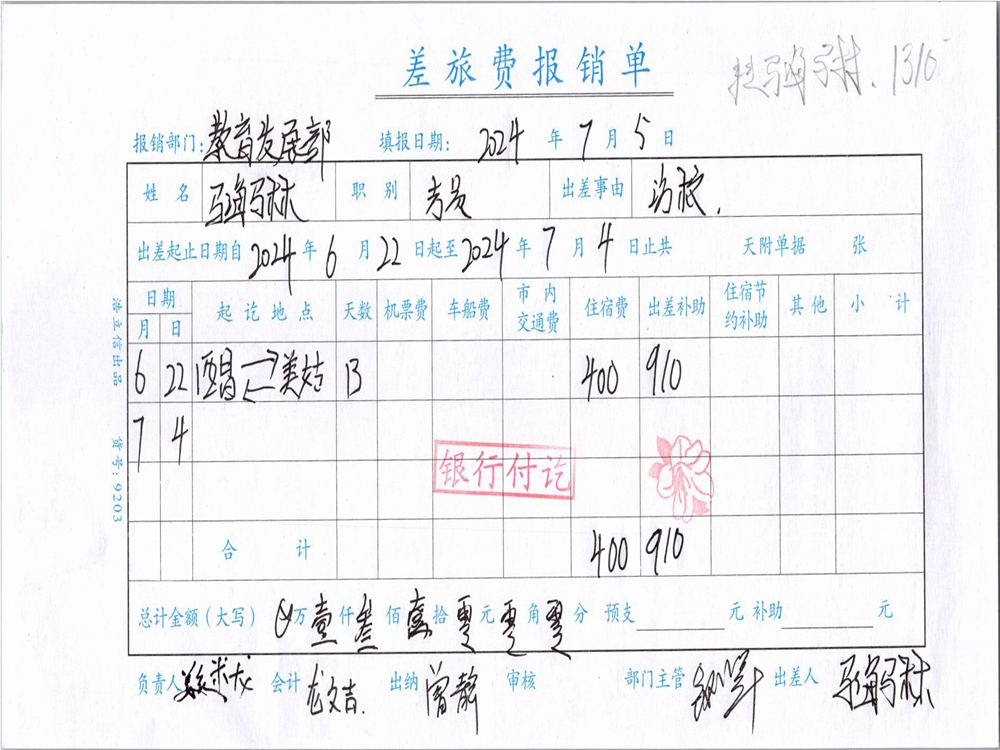 差旅费报销单
1310
报销部门：教育发展部 填报日期：2024年7月5日
姓名 马海马林 职别 出差事由
出差起止日期自2024年6月22日起至2024年7月4日止共 天附单据 张
日期 起讫地点 天数 机票费 车船费 市内交通费 住宿费 出差补助 住宿节约补助 其他 小计
月 日
6 22 西昌 美姑 13 400 910
7 4
银行付讫
合计 400 910
总计金额（大写） 万壹仟叁佰壹拾零元零角零分 预支 元 补助 元
负责人 会计 龙文吉 出纳 曾静 审核 部门主管 出差人 马海马林
浩立信出品 货号：9203